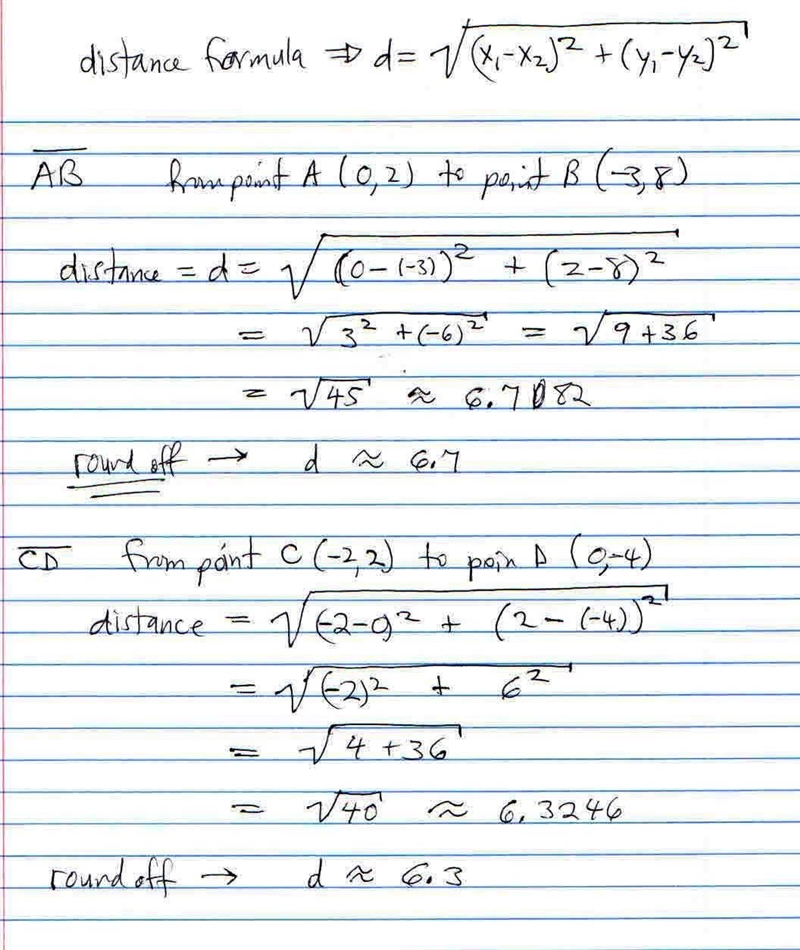 distance formula ⇒ d = √(x₁-x₂)² + (y₁-y₂)²
AB from point A (0,2) to point B (-3,8)
distance = d = √(0-(-3))² + (2-8)²
= √3² + (-6)² = √9+36
= √45 ≈ 6.7082
round off → d ≈ 6.7
CD from point C (-2,2) to poin D (0,-4)
distance = √(-2-0)² + (2-(-4))²
= √(-2)² + 6²
= √4+36
= √40 ≈ 6.3246
round off → d ≈ 6.3